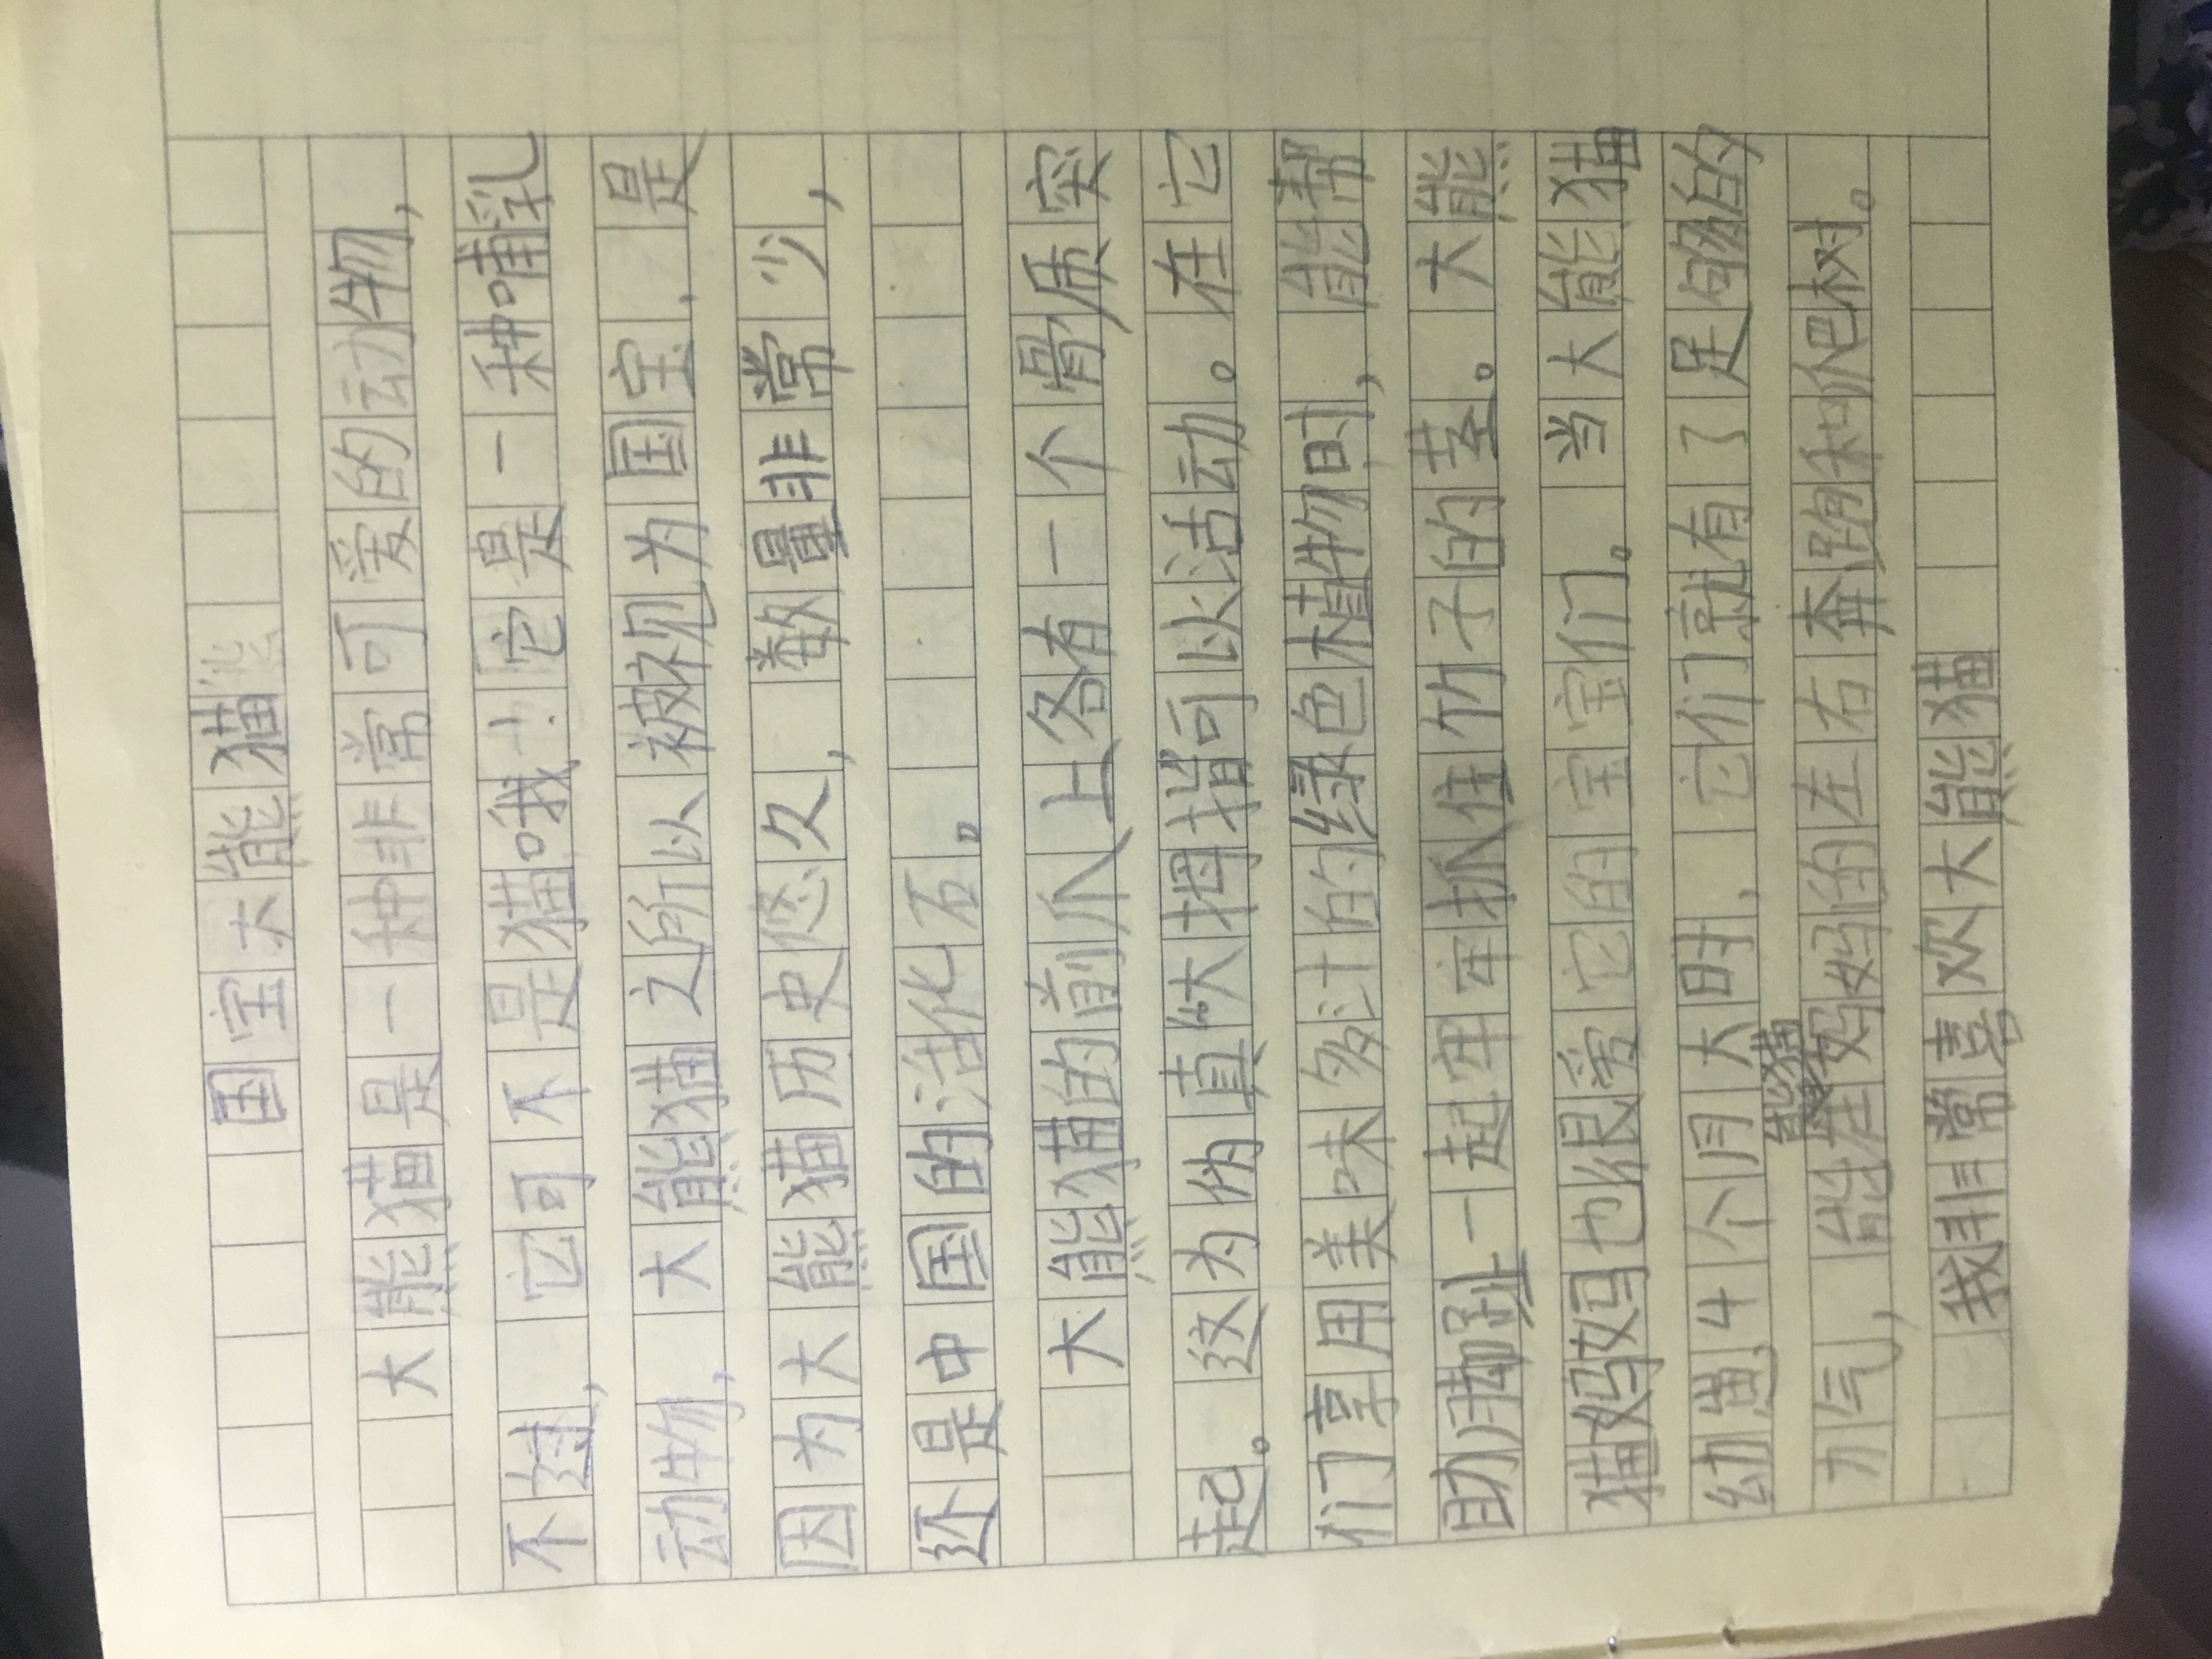 国宝大熊猫
大熊猫是一种非常可爱的动物，
不过，它可不是猫哦！它是一种哺乳
动物，大熊猫之所以被视为国宝，是
因为大熊猫历史悠久，数量非常少，
还是中国的活化石。
大熊猫的前爪上各有一个骨质突
起。这为伪真“大拇指”可以活动。在它
们享用美味多汁的绿色植物时，能帮
助脚趾一起牢牢抓住竹子的茎。大熊
猫妈妈也很爱它的宝宝们。当大熊猫
幼崽4个月大时，它们就有了足够的
力气，能在熊猫妈妈的左右奔跑和爬树。
我非常喜欢大熊猫